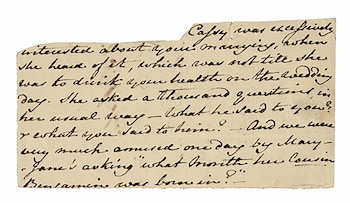 Cassy was excessively
interested about your marrying, when
she heard of it, which was not till she
was to drink your health on the wedding
day. She asked a thousand questions, in
her usual way – What he said to you?
& what you said to him? – And we were
very much amused one day by Mary-
Jane's asking "what Month her Cousin
Benjamin was born in?" –